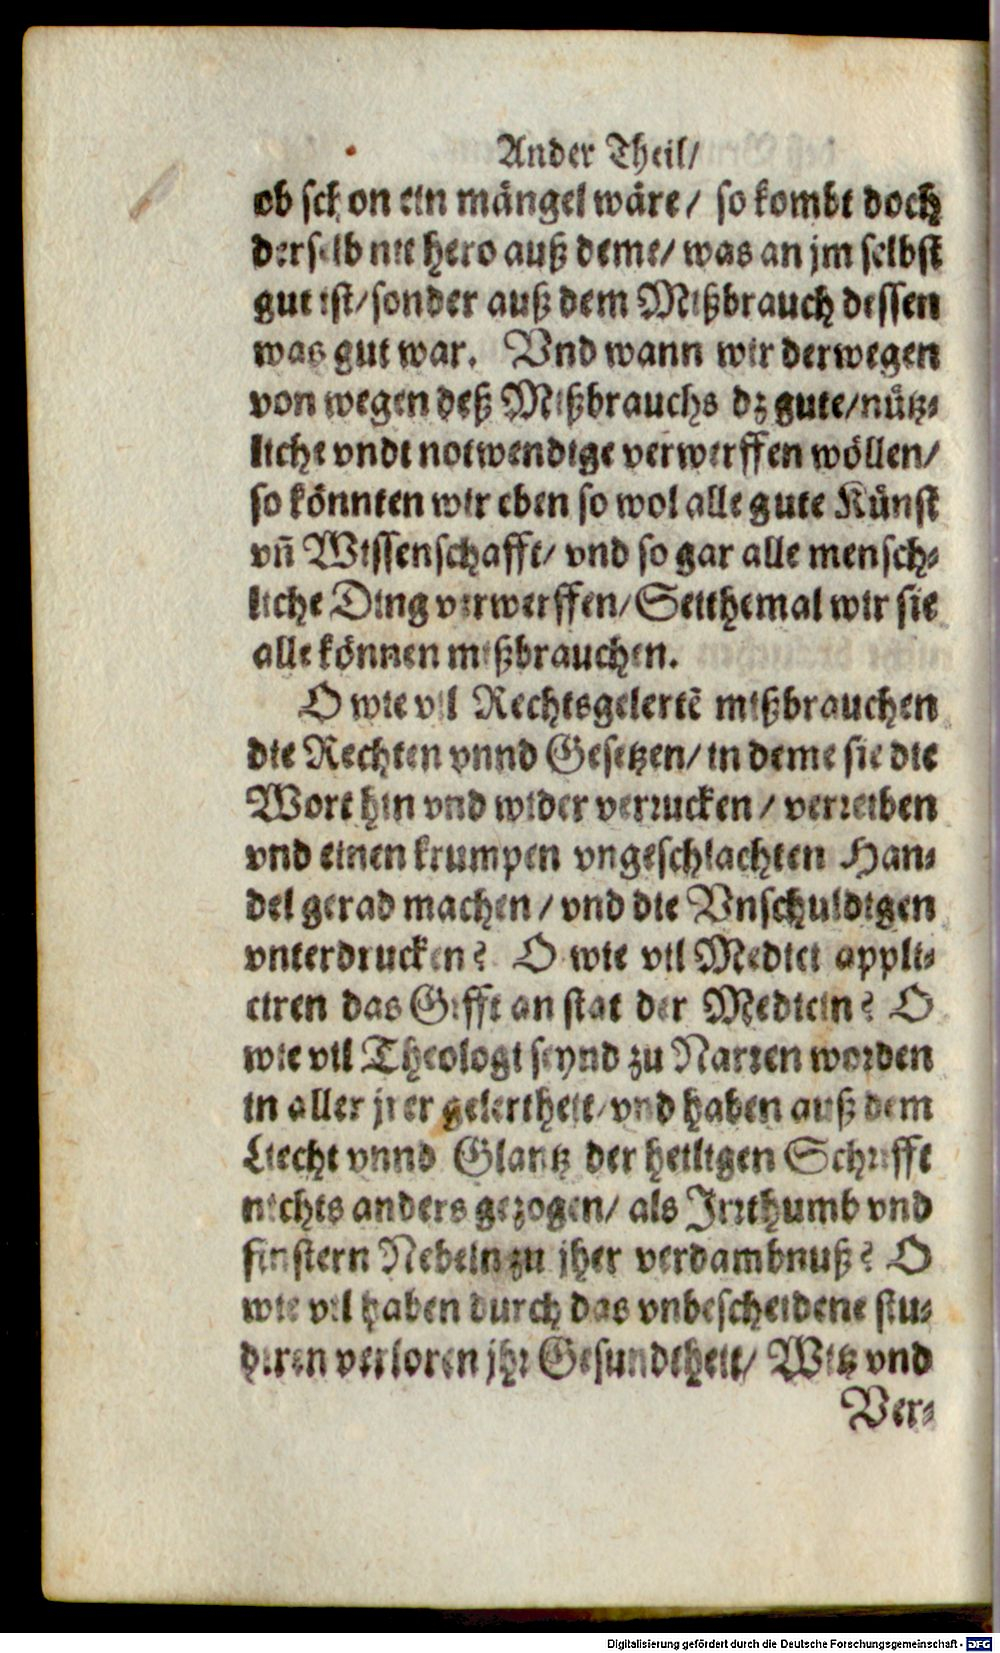 Ander Theil/
ob schon ein mängel wäre/ so kombt doch
derselb nit hero auß deme/ was an jm selbst
gut ist/ sonder auß dem Mißbrauch dessen
was gut war. Vnd wann wir derwegen
von wegen deß Mißbrauchs dz gute/ nütz-
liche vndt notwendige verwerffen wöllen/
so könnten wir eben so wol alle gute Künst
vñ Wissenschafft/ vnd so gar alle mensch-
liche Ding verwerffen/ Seithemal wir sie
alle können mißbrauchen.
O wie vil Rechtsgelertē mißbrauchen
die Rechten vnnd Gesetzen/ in deme sie die
Wort hin vnd wider verrucken / verreiben
vnd einen krumpen vngeschlachten Han-
del gerad machen / vnd die Vnschuldigen
vnterdrucken? O wie vil Medici appli-
ciren das Gifft an stat der Medicin? O
wie vil Theologi seynd zu Narren worden
in aller jrer gelertheit/ vnd haben auß dem
Liecht vnnd Glantz der heiligen Schrifft
nichts anders gezogen/ als Irrthumb vnd
finstern Nebeln zu jher verdambnuß? O
wie vil haben durch das vnbescheidene stu-
diren verloren jhr Gesundtheit/ Witz vnd
Ver-
Digitalisierung gefördert durch die Deutsche Forschungsgemeinschaft - DFG